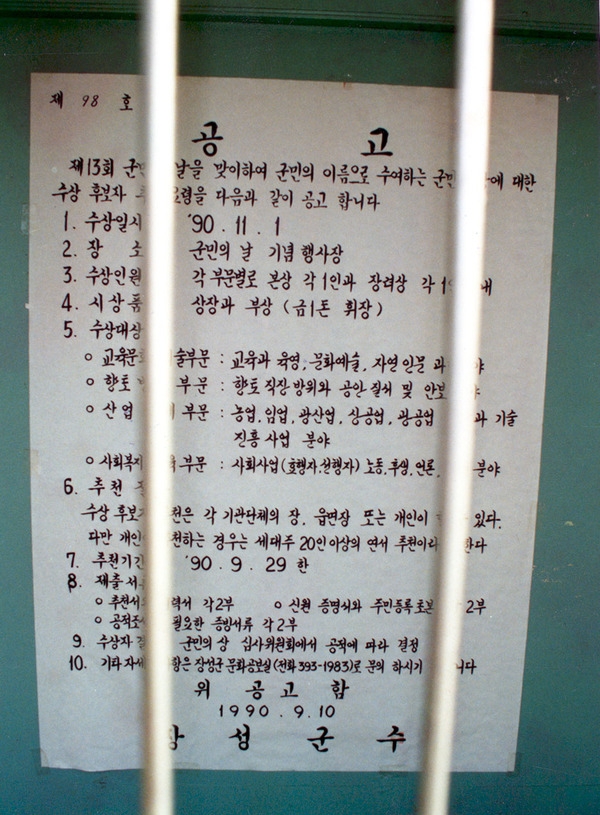 제 98 호
공 고
제13회 군민 날을 맞이하여 군민의 이름으로 수여하는 군민 에 대한
수상 후보자 요령을 다음과 같이 공고 합니다
1. 수상일시 '90. 11. 1
2. 장 소 군민의 날 기념 행사장
3. 수상인원 각 부문별로 본상 각 1인과 장려상 각 1 내
4. 시상품 상장과 부상 (금1돈 휘장)
5. 수상대상
○ 교육문화 술부문 : 교육과 육영, 문화예술, 자연 인물 과 야
○ 향토 부문 : 향토 직장 방위와 공안 질서 및 안보 야
○ 산업 부문 : 농업, 임업, 광산업, 상공업, 광공업 과 기술
진흥 사업 분야
○ 사회복지 부문 : 사회사업 (효행자, 선행자) 노동, 후생, 언론, 분야
6. 추천
수상 후보자 천은 각 기관단체의 장, 읍면장 또는 개인이 있다.
다만 개인 천하는 경우는 세대주 20인 이상의 연서 추천이라 한다
7. 추천기간 '90. 9. 29 한
8. 제출서류
○ 추천서 력서 각 2부 ○ 신원 증명서와 주민등록 초본 2부
○ 공적조서 필요한 증빙서류 각 2부
9. 수상자 결 군민의 상 심사위원회에서 공적에 따라 결정
10. 기타 자세 항은 장성군 문화공보실 (전화 393-1983)로 문의 하시기 니다
위 공고함
1990. 9. 10
장 성 군 수